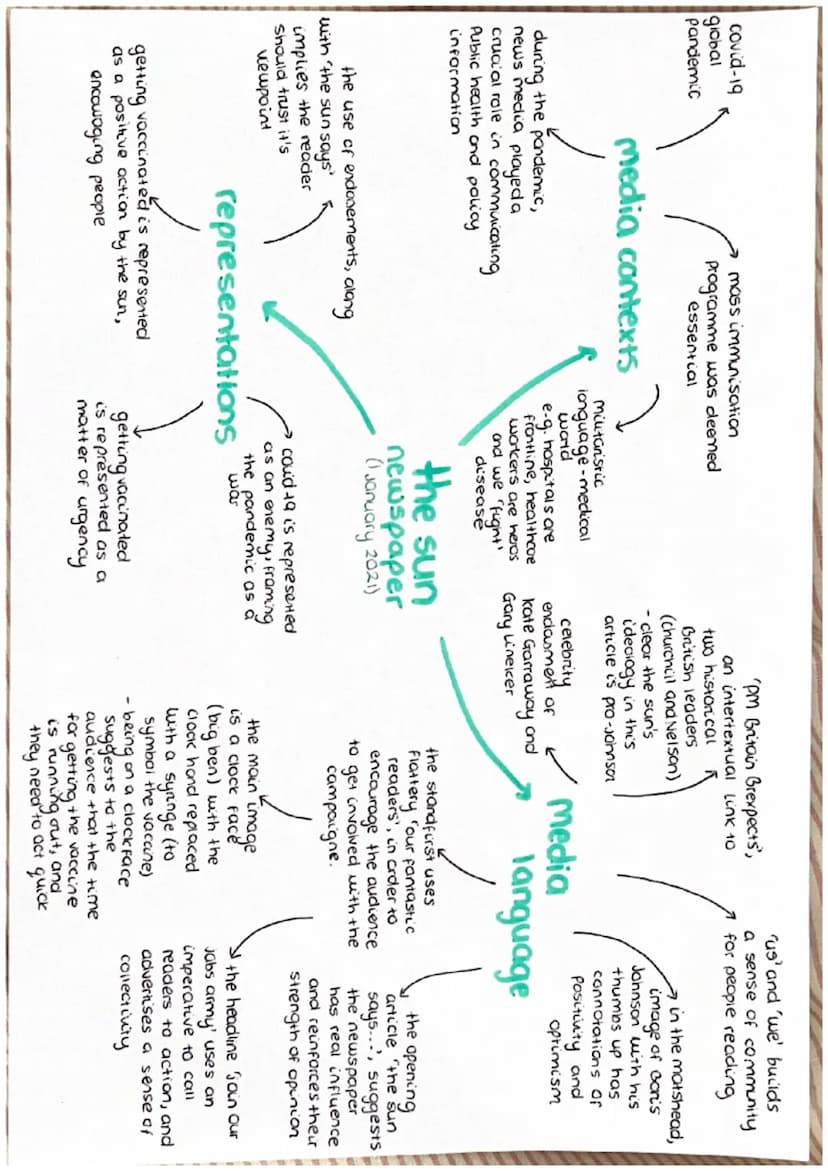 the sun
newspaper
(1 January 2021)
media contexts
covid-19
global
pandemic
during the pandemic,
news media played a
crucial role in communicating
Public health and policy
information
mass immunisation
programme was deemed
essential
militaristic
language - medical
world
e.g. hospitals are
frontline, healthcare
workers are heros
and we 'fight'
disease
representations
the use of endorsements, along
with 'the sun says'
implies the reader
should trust it's
viewpoint
getting vaccinated is represented
as a positive action by the sun,
encouraging people
getting vaccinated
is represented as a
matter of urgency
covid 19 is represented
as an enemy, framing
the pandemic as a
war
media
language
'PM Britain Brexpects',
an intertextual link to
two historical
British leaders
(churchill and Nelson)
- clear the sun's
ideology in this
article is pro-Johnson
celebrity
endorsment of
Kate Garraway and
Gary Lineker
'us' and 'we' builds
a sense of community
for people reading
in the matshead,
image of Boris
Johnson with his
thumbs up has
connotations of
positivity and
optimism
the standfirst uses
flattery 'our fantastic
readers', in order to
encourage the audience
to get involved with the
campaigne.
the main image
is a clock face
(big ben) with the
clock hand replaced
with a syringe (to
symbol the vaccine)
- being on a clockface
suggests to the
audience that the time
for getting the vaccine
is running out, and
they need to act quick
the opening
article, 'the sun
says...', suggests
the newspaper
has real influence
and reinforces their
strength of opinion
the headline 'Join our
jabs army' uses an
imperative to call
readers to action, and
advertises a sense of
collectivity